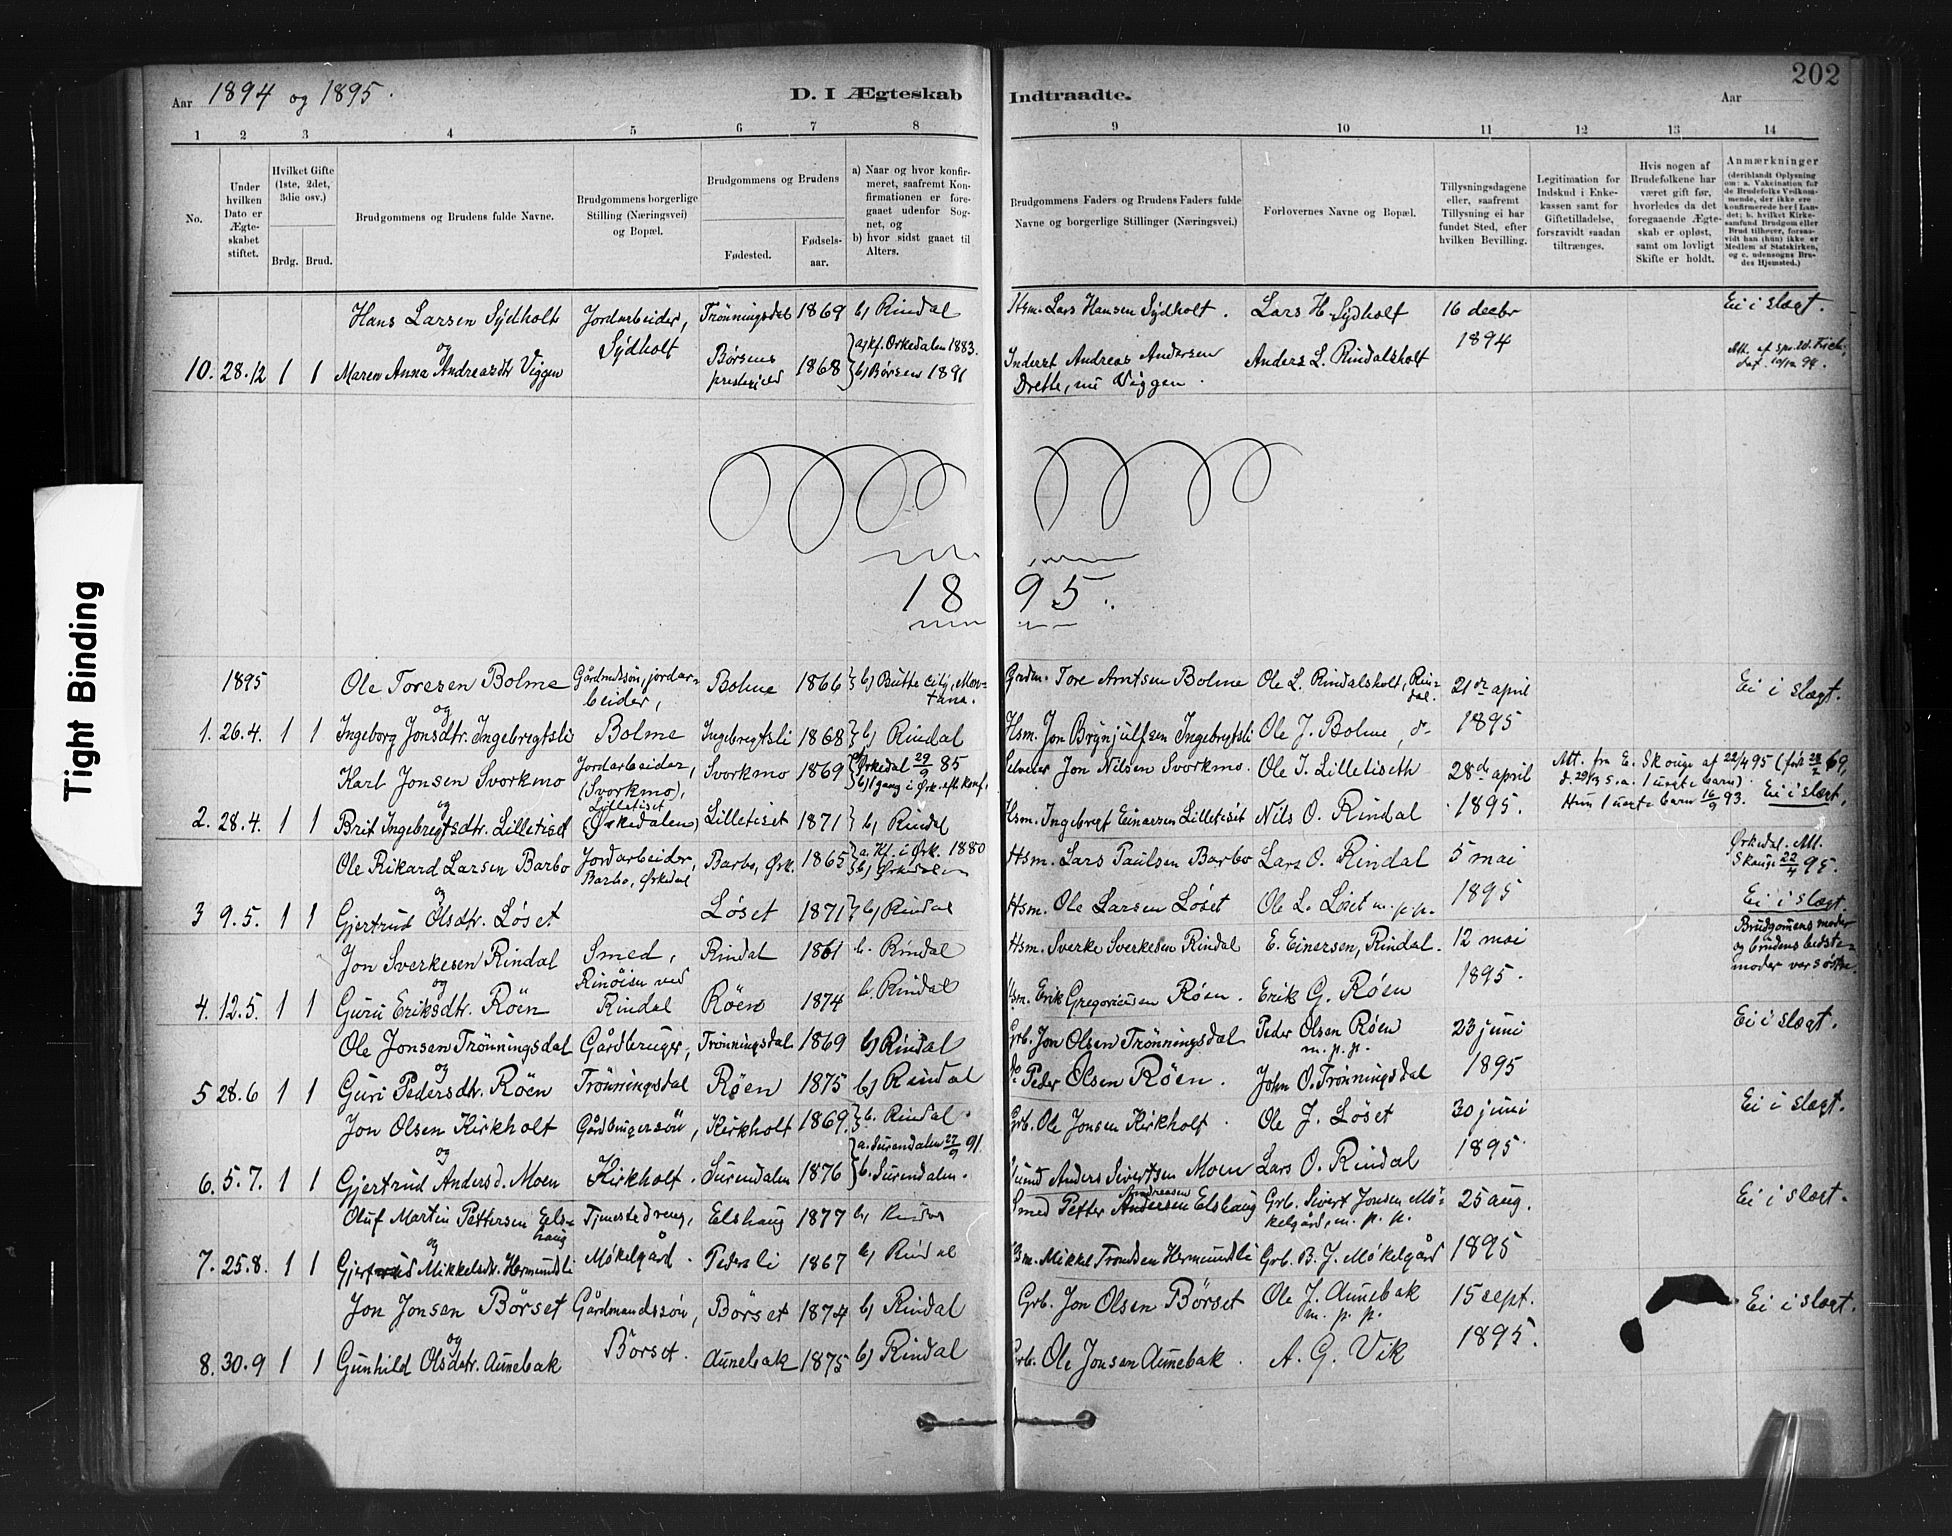 Aar 1894 og 1895.
D. I Ægteskab Indtraadte.
Aar
202
1 2 3 4 5 6 7 8 9 10 11 12 13 14
No.
Under hvilken Dato er Ægteskabet stiftet.
Hvilket Gifte (1ste, 2det, 3die osv.)
Brdg. Brud.
Brudgommens og Brudens fulde Navne.
Brudgommens borgerlige Stilling (Næringsvei) og Bopæl.
Brudgommens og Brudens
Fødested.
Fødsels-aar.
a) Naar og hvor konfirmeret, saafremt Konfirmationen er foregaaet udenfor Sognet, og
b) hvor sidst gaaet til Alters.
Brudgommens Faders og Brudens Faders fulde Navne og borgerlige Stillinger (Næringsvei.)
Forlovernes Navne og Bopæl.
Tillysningsdagene eller, saafremt Tillysning ei har fundet Sted, efter hvilken Bevilling.
Legitimation for Indskud i Enkekassen samt for Giftetilladelse, forsravidt saadan tiltrænges.
Hvis nogen af Brudefolkene har været gift før, hvorledes da det foregaaende Ægteskab er opløst, samt om lovligt Skifte er holdt.
Anmærkninger (deriblandt Oplysning om: a. Vakcination for de Brudefolks Vedkommende, der ikke ere konfirmerede her i Landet; b. hvilket Kirkesamfund Brudgom eller Brud tilhører, forsavidt han (hun) ikke er Medlem af Statskirken, og c. udensogns Brudes Hjemsted.)
Hans Larsen Sydholt Jordarbeider, Trønningsdal 1869 b) Rindal Hsm. Lars Hansen Sydholt. Lars H. Sydholt 16 decbr Ei i slægt.
og Sydholt a) kf. Orkedalen 1883. 1894
10. 28.12 1 1 Maren Anna Andreasdtr Viggen Børsens prestegjeld 1868 b) Børsen 1891 Inderst Andreas Andersen Anders L. Rindalsholt
Drette, nu Viggen.
18 95.
1895 Ole Toresen Bolme Gårdmdssøn, jordarbeider, Bolme 1866 b) Butte City, Montana. Grdm. Tore Arntsen Bolme Ole L. Rindalsholt, Rindal. 21de april Ei i slægt.
og
1. 26.4. 1 1 Ingeborg Jonsdtr. Ingebregtsli Bolme Ingebregtsli 1868 b) Rindal Hsm. Jon Brynjulfsen Ingebregtsli Ole J. Bolme, do 1895
Karl Jonsen Svorkmo Jordarbeider, (Svorkmo), Svorkmo 1869 Ørkedal 29/9 85 b) 1 gang i Ørk. eft. konf. Selveier Jon Nilsen Svorkmo. Ole J. Lilletiseth 28de april Att. fra E. Skouge af 22/4 95
og Hun 1 uægte barn 16/9 93. Ei i slægt.
2. 28.4. 1 1 Brit Ingebregtsdtr. Lilletiset Lilletiset (Ørkedalen) Lilletiset 1871 b) Rindal Hsm. Ingebregt Einarsen Lilletiset Nils O. Rindal 1895.
Ole Rikard Larsen Barbo Jordarbeider, Barbo, Ørkedal Barbo, Ørk. 1865 a. Kf. i Ørk. 1880 b) Ørkedalen Hsm. Lars Paulsen Barbo Lars O. Rindal 5 mai Ørkedal. Att. Skauge 22/4 95.
og
3 9.5. 1 1 Gjertrud Olsdtr. Løset Løset 1871 b) Rindal Hsm. Ole Larsen Løset Ole L. Løset m. p. p. 1895 Ei i slægt.
Jon Sverkesen Rindal Smed, Rindal 1861 b. Rindal Hsm. Sverke Sverkesen Rindal E. Einersen, Rindal. 12 mai Brudgomens moder og brudens bedstemoder var søstre.
og Rinøien ved
4. 12.5. 1 1 Guru Eriksdtr. Røen Rindal Røen 1874 b. Rindal Hsm. Erik Gregoriusen Røen. Erik G. Røen 1895.
Ole Jonsen Trönningsdal Gårdbruger, Trönningsdal 1869 b) Rindal Grb. Jon Olsen Trönningsdal Peder Olsen Røen m. p. p. 23 juni Ei i slægt.
og
5 28.6 1 1 Guri Pedersdtr. Röen Trönningsdal Röen 1875 b) Rindal do Peder Olsen Röen. John O. Trønningsdal 1895
Jon Olsen Kirkholt Gårdbrugersön, Kirkholt 1869. b. Rindal. Grb. Ole Jonsen Kirkholt. Ole J. Løset 30 juni Ei i slægt.
og a. Surendalen 27/9 91.
6. 5.7. 1 1 Gjertrud Andersd. Moen Kirkholt. Surendalen 1876 b. Surendalen. Anders Sivertsen Moen Lars O. Rindal 1895.
Oluf Martin Pettersen Elshaug Tjenestedreng, Elshaug 1877 b) Rindal Smed Petter Andreasen Andersen Elshaug Grb. Sivert Jonsen Møkelgård, m. p. p. 25 aug. Ei i slægt.
og
7. 25.8. 1 1 Gjertrud Mikkelsdr. Hermundsli Møkelgård. Pedersli 1867 b) Rindal Mikkel Trondsen Hermundsli Grb. B. J. Møkelgård 1895
Jon Jonsen Börset Gårdmandssön, Börset 1874 b) Rindal Grb. Jon Olsen Börset Ole J. Aunebak m. p. p. 15 sept. Ei i slægt.
og
8. 30.9 1 1 Gunhild Olsdtr. Aunebak Börset. Aunebak 1875 b) Rindal Grb. Ole Jonsen Aunebak. A. G. Vik 1895.
Tight Binding